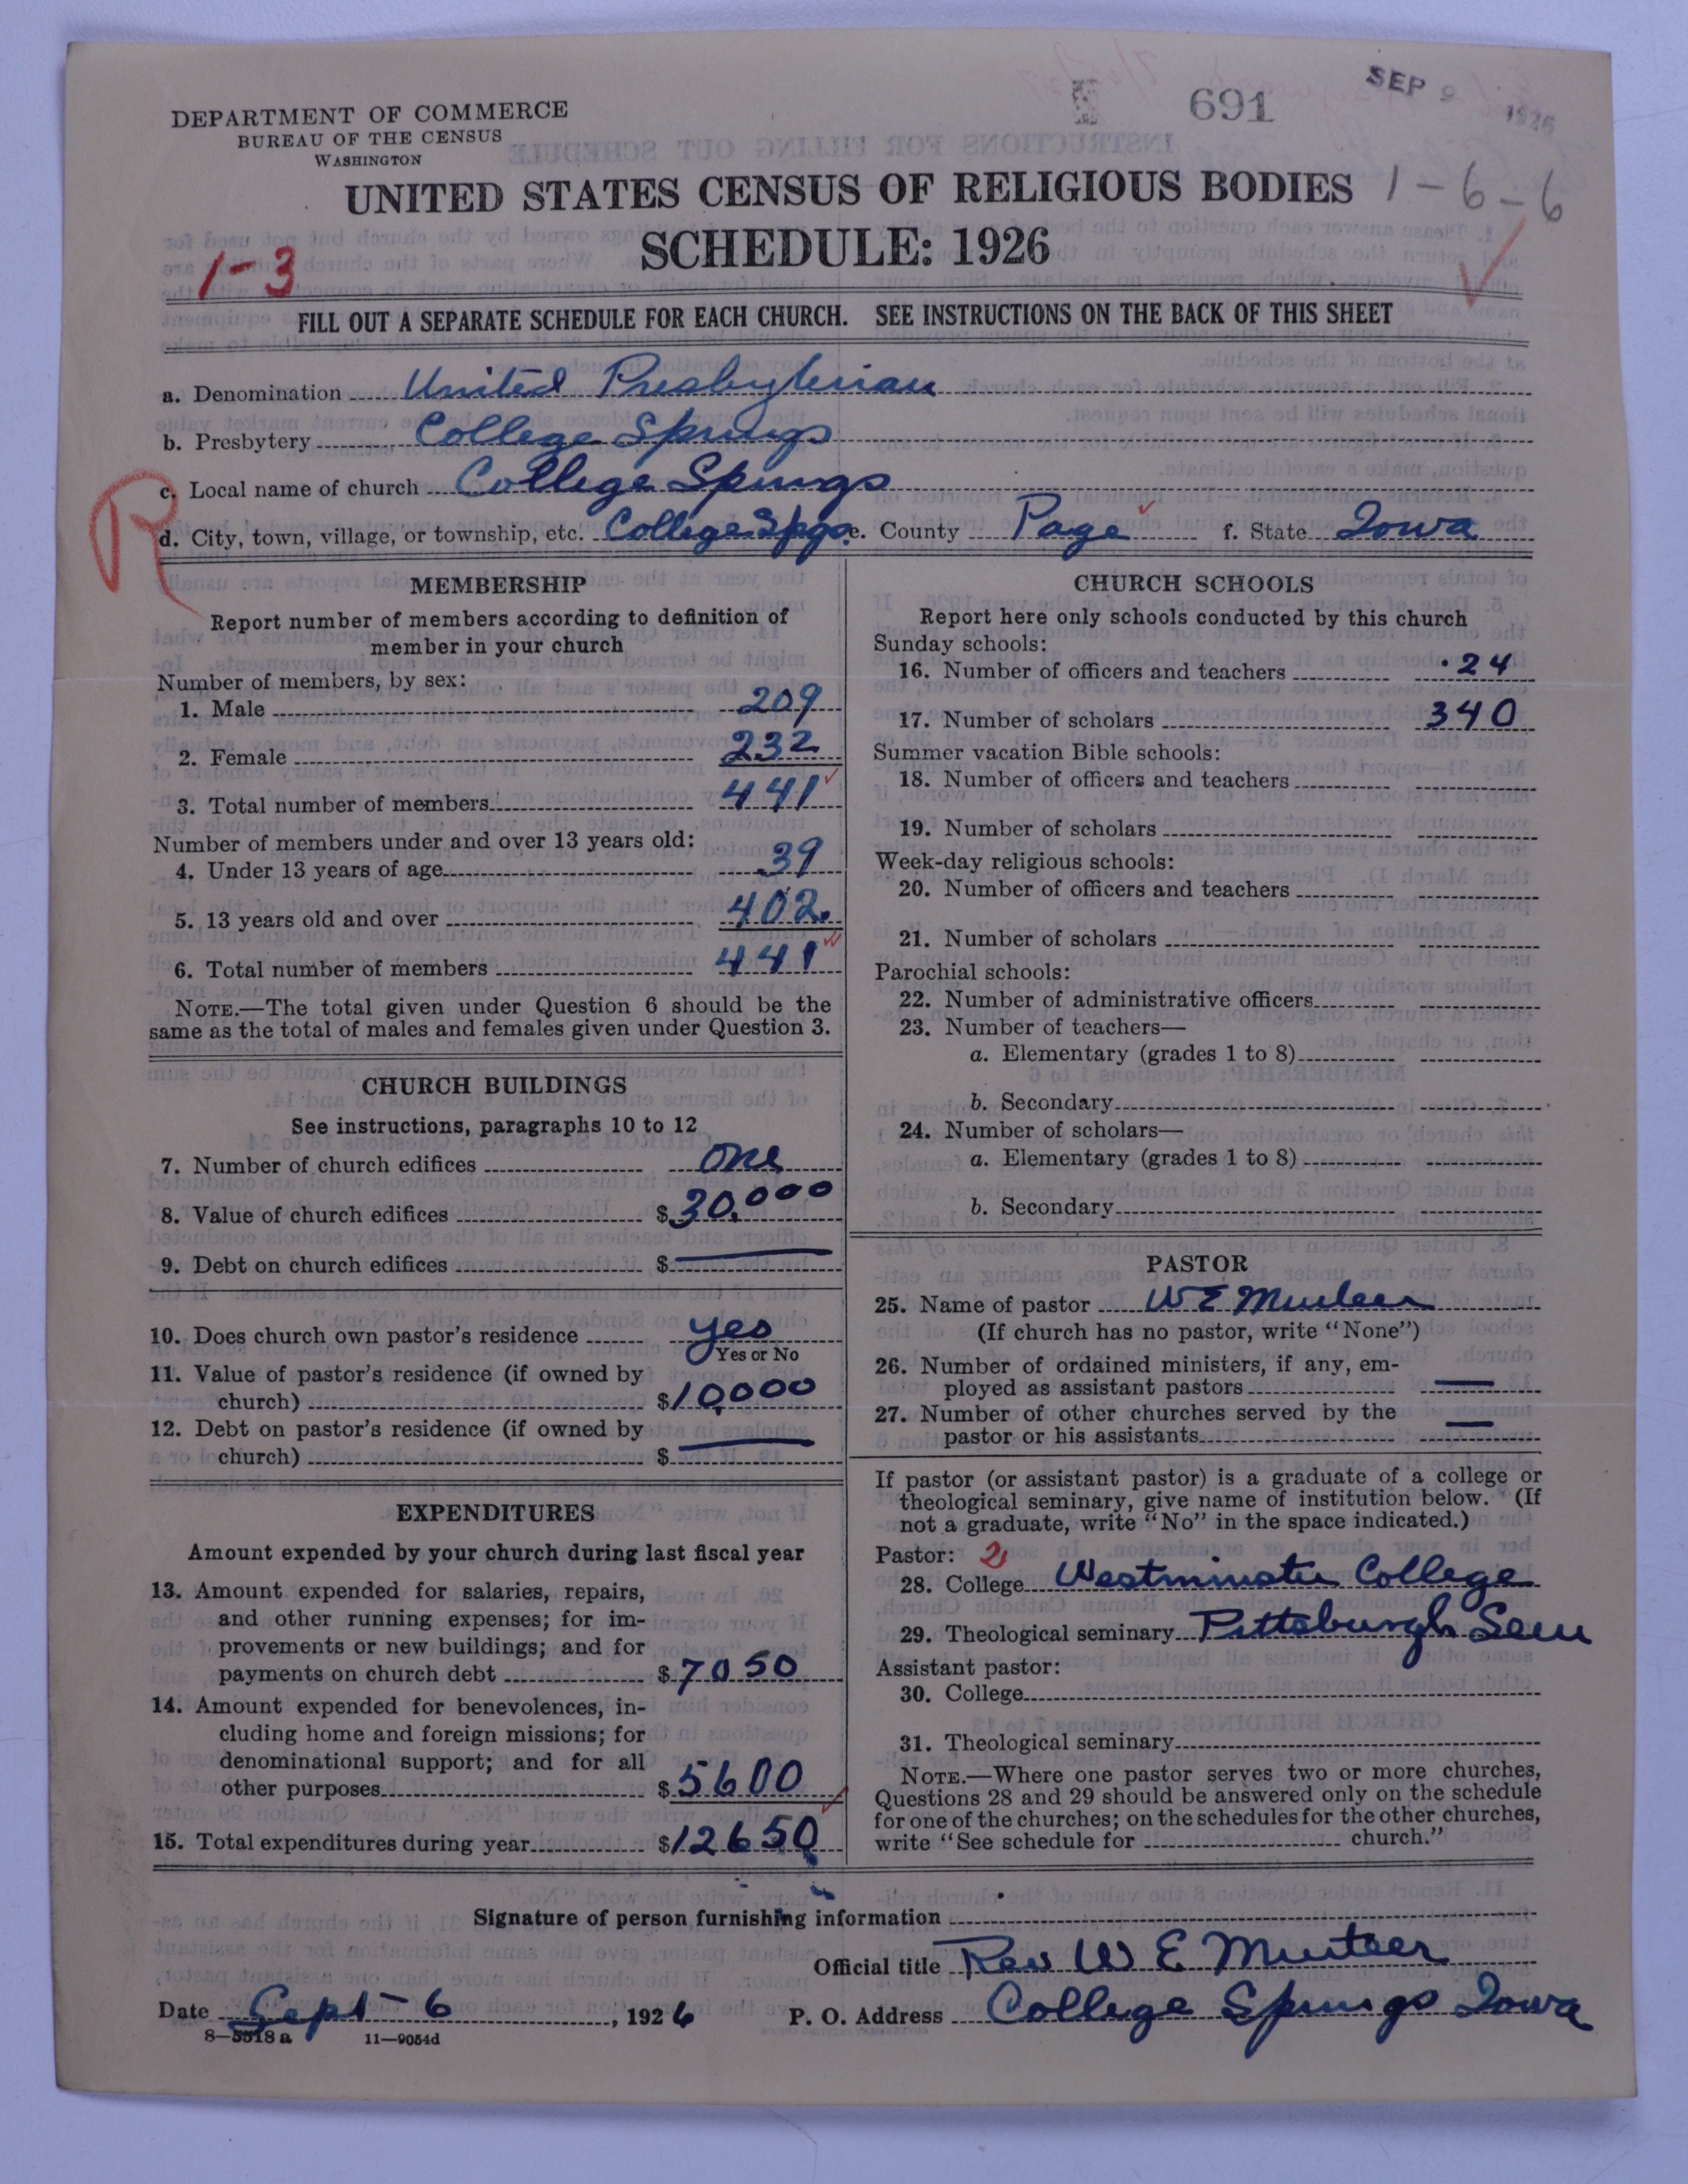 691
SEP 9 1926
DEPARTMENT OF COMMERCE
BUREAU OF THE CENSUS
WASHINGTON
UNITED STATES CENSUS OF RELIGIOUS BODIES 1-6-6
SCHEDULE: 1926
1-3
FILL OUT A SEPARATE SCHEDULE FOR EACH CHURCH. SEE INSTRUCTIONS ON THE BACK OF THIS SHEET
a. Denomination United Presbyterian
b. Presbytery College Springs
R
c. Local name of church College Springs
d. City, town, village, or township, etc. College Spgs e. County Page f. State Iowa
MEMBERSHIP
Report number of members according to definition of
member in your church
Number of members, by sex:
1. Male 209
2. Female 232
3. Total number of members 441
Number of members under and over 13 years old:
4. Under 13 years of age 39
5. 13 years old and over 402
6. Total number of members 441
NOTE.—The total given under Question 6 should be the
same as the total of males and females given under Question 3.
CHURCH BUILDINGS
See instructions, paragraphs 10 to 12
7. Number of church edifices One
8. Value of church edifices $30,000
9. Debt on church edifices $ —
10. Does church own pastor's residence yes
Yes or No
11. Value of pastor's residence (if owned by
church) $10,000
12. Debt on pastor's residence (if owned by
church) $ —
EXPENDITURES
Amount expended by your church during last fiscal year
13. Amount expended for salaries, repairs,
and other running expenses; for im-
provements or new buildings; and for
payments on church debt $7050
14. Amount expended for benevolences, in-
cluding home and foreign missions; for
denominational support; and for all
other purposes $5600
15. Total expenditures during year $12650
CHURCH SCHOOLS
Report here only schools conducted by this church
Sunday schools:
16. Number of officers and teachers 24
17. Number of scholars 340
Summer vacation Bible schools:
18. Number of officers and teachers
19. Number of scholars
Week-day religious schools:
20. Number of officers and teachers
21. Number of scholars
Parochial schools:
22. Number of administrative officers
23. Number of teachers—
a. Elementary (grades 1 to 8)
b. Secondary
24. Number of scholars—
a. Elementary (grades 1 to 8)
b. Secondary
PASTOR
25. Name of pastor W E
(If church has no pastor, write "None")
26. Number of ordained ministers, if any, em-
ployed as assistant pastors —
27. Number of other churches served by the
pastor or his assistants —
If pastor (or assistant pastor) is a graduate of a college or
theological seminary, give name of institution below. (If
not a graduate, write "No" in the space indicated.)
Pastor: 2
28. College Westminster College
29. Theological seminary Pittsburgh Sem
Assistant pastor:
30. College
31. Theological seminary
NOTE.—Where one pastor serves two or more churches,
Questions 28 and 29 should be answered only on the schedule
for one of the churches; on the schedules for the other churches,
write "See schedule for church."
Signature of person furnishing information
Official title Rev W E
Date Sept 6, 1926 P. O. Address College Springs Iowa
8—5518 a 11—9054d